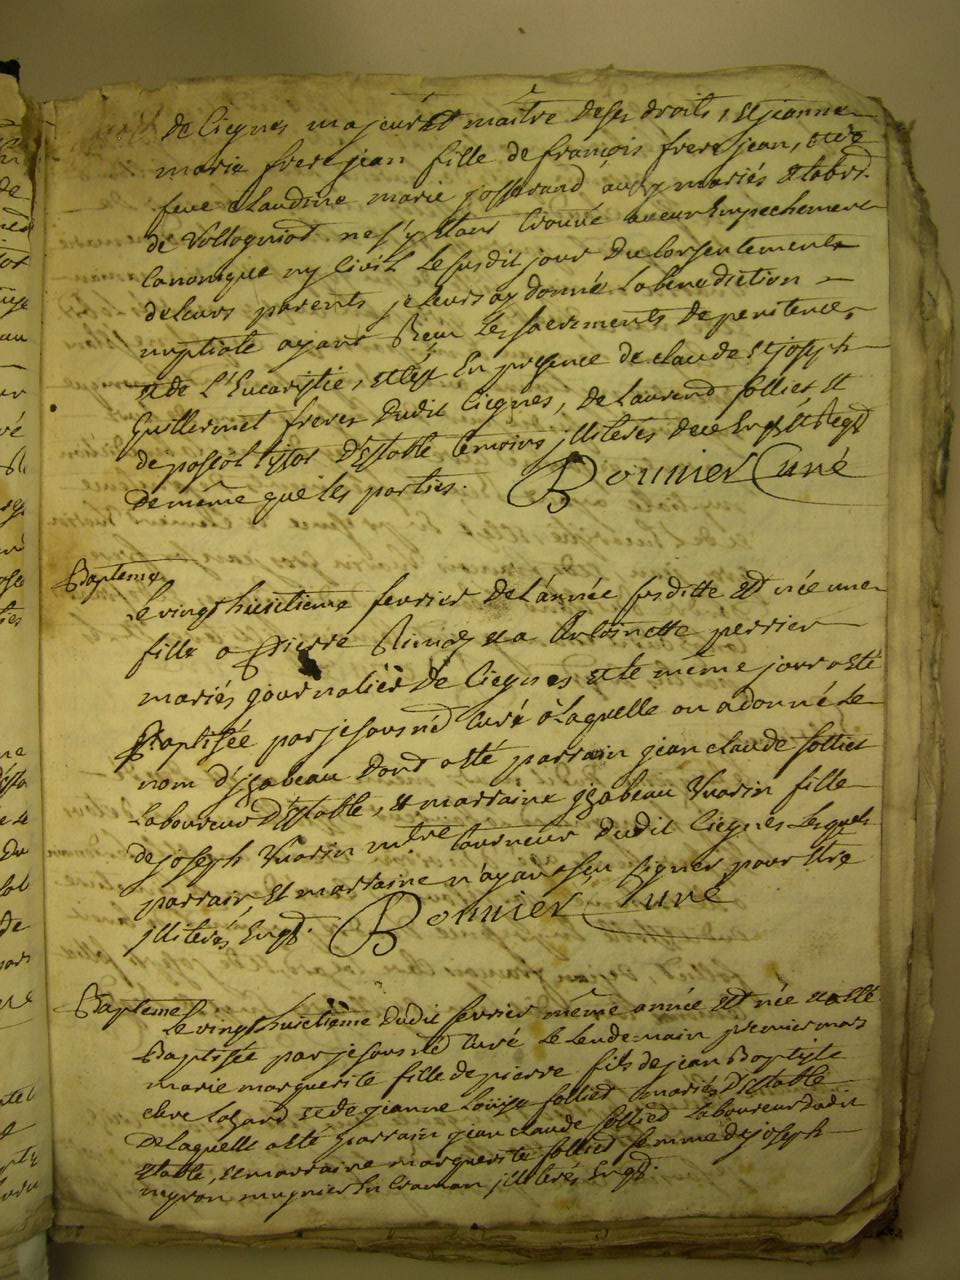 de Ciegnes majeur et maître de ses droits, et jeanne
marie frere jean fille de françois frere jean, et de
feue Claudine marie josserand aussy mariés et labrs
de Vollognat ne s'y étant trouvé aucun Empechement
Canonique ny Civil Le susdit jour du Consentement
de leurs parents je leurs ay donné La benediction
nuptiale ayant Reçu Les sacrements de penitence,
et de L'Eucaristie, et ce En presence de claude et joseph
Guillermet freres dudit Ciegnes, de Laurend follliet et
de tissot D'Estable temoins illiterés de ce Enqs et Reqs
De même que les parties. Bonnier Curé
Bapteme
Le vingt huitieme fevrier de L'année susditte est née une
fille a Pierre et a Antoinette perrier
mariés journalier de Ciegnes et le meme jour a été
Baptisée par je sousné Curé a Laquelle on a donné Le
nom d'yzabeau dont a été parrain jean claude folliet
Laboureur D'Estable, et marraine yzabeau Vuarin fille
de joseph Vuarin mtre tourneur dudit Ciegnes Lesquels
parrain et marraine n'ayant sçu signer pour être
jlliterés Enqs. Bonnier Curé
Bapteme
Le vingt huitième dudit fevrier même année est née et a été
Baptisée par je sousné Curé Le Lendemain premier mars
marie marguerite fille de pierre fils de jean Baptiste
Lazard et de jeanne Louise folliet mariés D'Estable
De Laquelle a été parrain jean claude folliet Laboureur dudit
Estable, et marraine marguerite folliet femme de joseph
neyron mugnier En jlliterés Enqs.